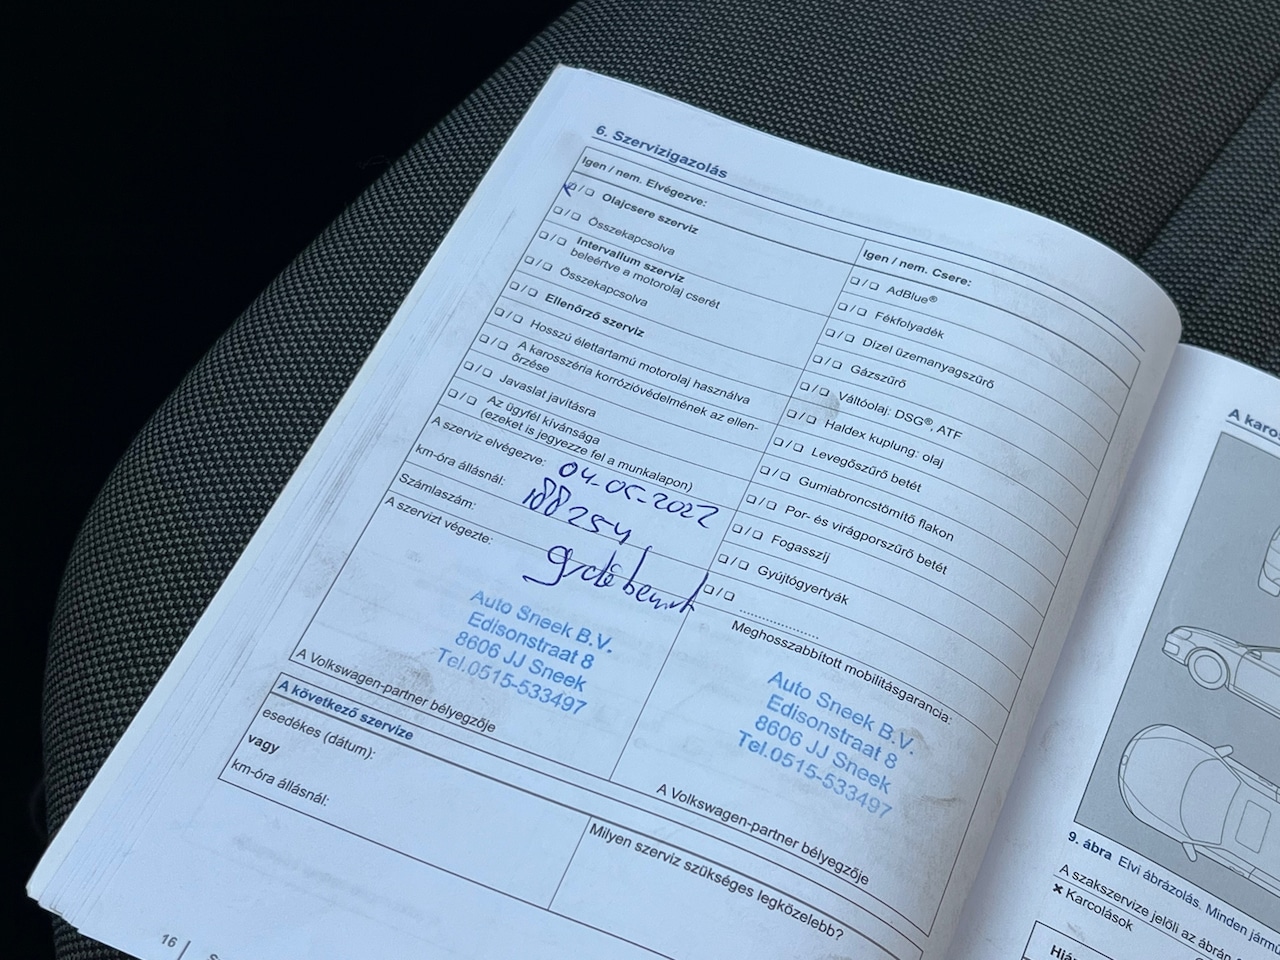 6. Szervizigazolás
Igen / nem. Elvégezve:
❏ / ❏ Olajcsere szerviz
❏ / ❏ Összekapcsolva
❏ / ❏ Intervallum szerviz
beleértve a motorolaj cserét
❏ / ❏ Összekapcsolva
❏ / ❏ Ellenőrző szerviz
❏ / ❏ Hosszú élettartamú motorolaj használva
❏ / ❏ A karosszéria korrózióvédelmének az ellen-
őrzése
❏ / ❏ Javaslat javításra
❏ / ❏ Az ügyfél kívánsága
(ezeket is jegyezze fel a munkalapon)
A szerviz elvégezve: 04-05-2022
km-óra állásnál: 188254
Számlaszám:
A szervizt végezte:
Auto Sneek B.V.
Edisonstraat 8
8606 JJ Sneek
Tel.0515-533497
A Volkswagen-partner bélyegzője
Igen / nem. Csere:
❏ / ❏ AdBlue®
❏ / ❏ Fékfolyadék
❏ / ❏ Dízel üzemanyagszűrő
❏ / ❏ Gázszűrő
❏ / ❏ Váltóolaj: DSG®, ATF
❏ / ❏ Haldex kuplung: olaj
❏ / ❏ Levegőszűrő betét
❏ / ❏ Gumiabroncstömítő flakon
❏ / ❏ Por- és virágporszűrő betét
❏ / ❏ Fogasszíj
❏ / ❏ Gyújtógyertyák
❏ / ❏ ....................
Meghosszabbított mobilitásgarancia:
Auto Sneek B.V.
Edisonstraat 8
8606 JJ Sneek
Tel.0515-533497
A Volkswagen-partner bélyegzője
A következő szervize
esedékes (dátum):
vagy
km-óra állásnál:
Milyen szerviz szükséges legközelebb?
16
A karo
9. ábra Elvi ábrázolás. Minden jármű
A szakszervize jelöli az ábrán
× Karcolások